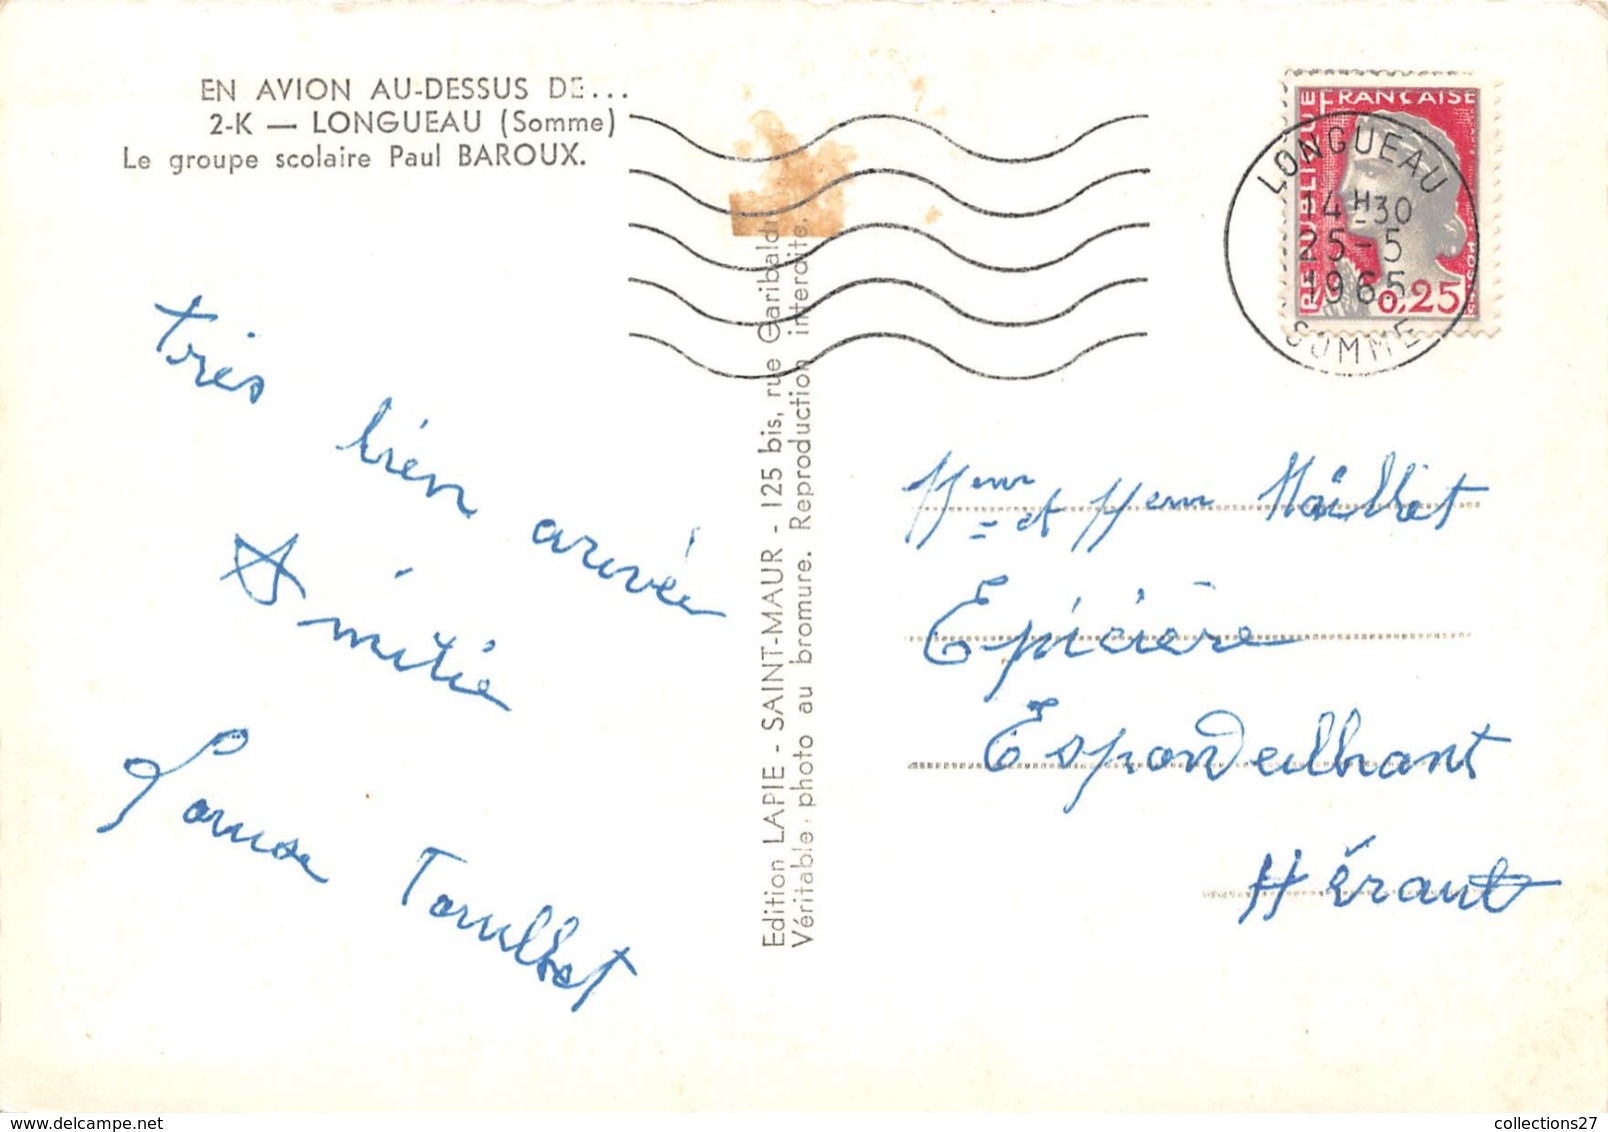 EN AVION AU-DESSUS DE...
2-K — LONGUEAU (Somme)
Le groupe scolaire Paul BAROUX.
très bien arrivée
Amitié
Edition LAPIE - SAINT-MAUR - 125 bis, rue Garibaldi
Véritable photo au bromure. Reproduction interdite.
REPUBLIQUE FRANÇAISE
0,25
LONGUEAU
14H30
25-5
1965
SOMME
et Maillet
Epicière
Espondeilhant
Hérault
collections27